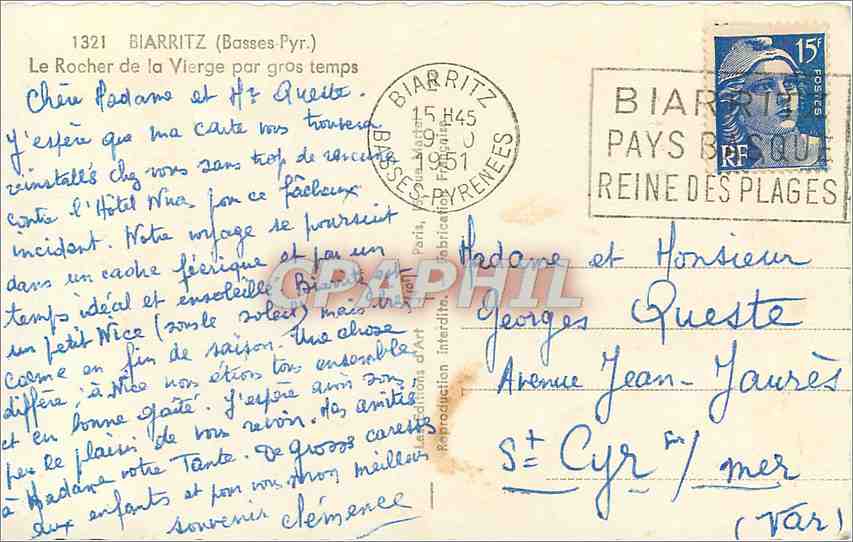 1321 BIARRITZ (Basses-Pyr.)
Le Rocher de la Vierge par gros temps
Chère Madame et Mr Queste.
J'espère que ma carte vous trouvera
réinstallés chez vous sans trop de rancune
contre l'Hôtel pour ce fâcheux
incident. Notre voyage se poursuit
dans un cadre féerique et par un
temps idéal et ensoleillé. Biarritz est
un petit Nice (sous le soleil) mais très
calme en fin de saison. Une chose
diffère; à Nice nous étions tous ensemble
et en bonne gaîté. J'espère avoir sous
peu le plaisir de vous revoir. Mes amitiés
à Madame votre Tante. De grosses caresses
aux enfants et pour vous mon meilleur
souvenir Clémence
BIARRITZ
15H45
9
1951
BASSES-PYRENEES
15F
POSTES
RF
BIARRITZ
PAYS BASQUE
REINE DES PLAGES
Les Editions d'Art Paris,
Reproduction Interdite. Fabrication Française.
CPAPHIL
Madame et Monsieur
Georges Queste
Avenue Jean-Jaurès
St Cyr sur/mer
(Var)